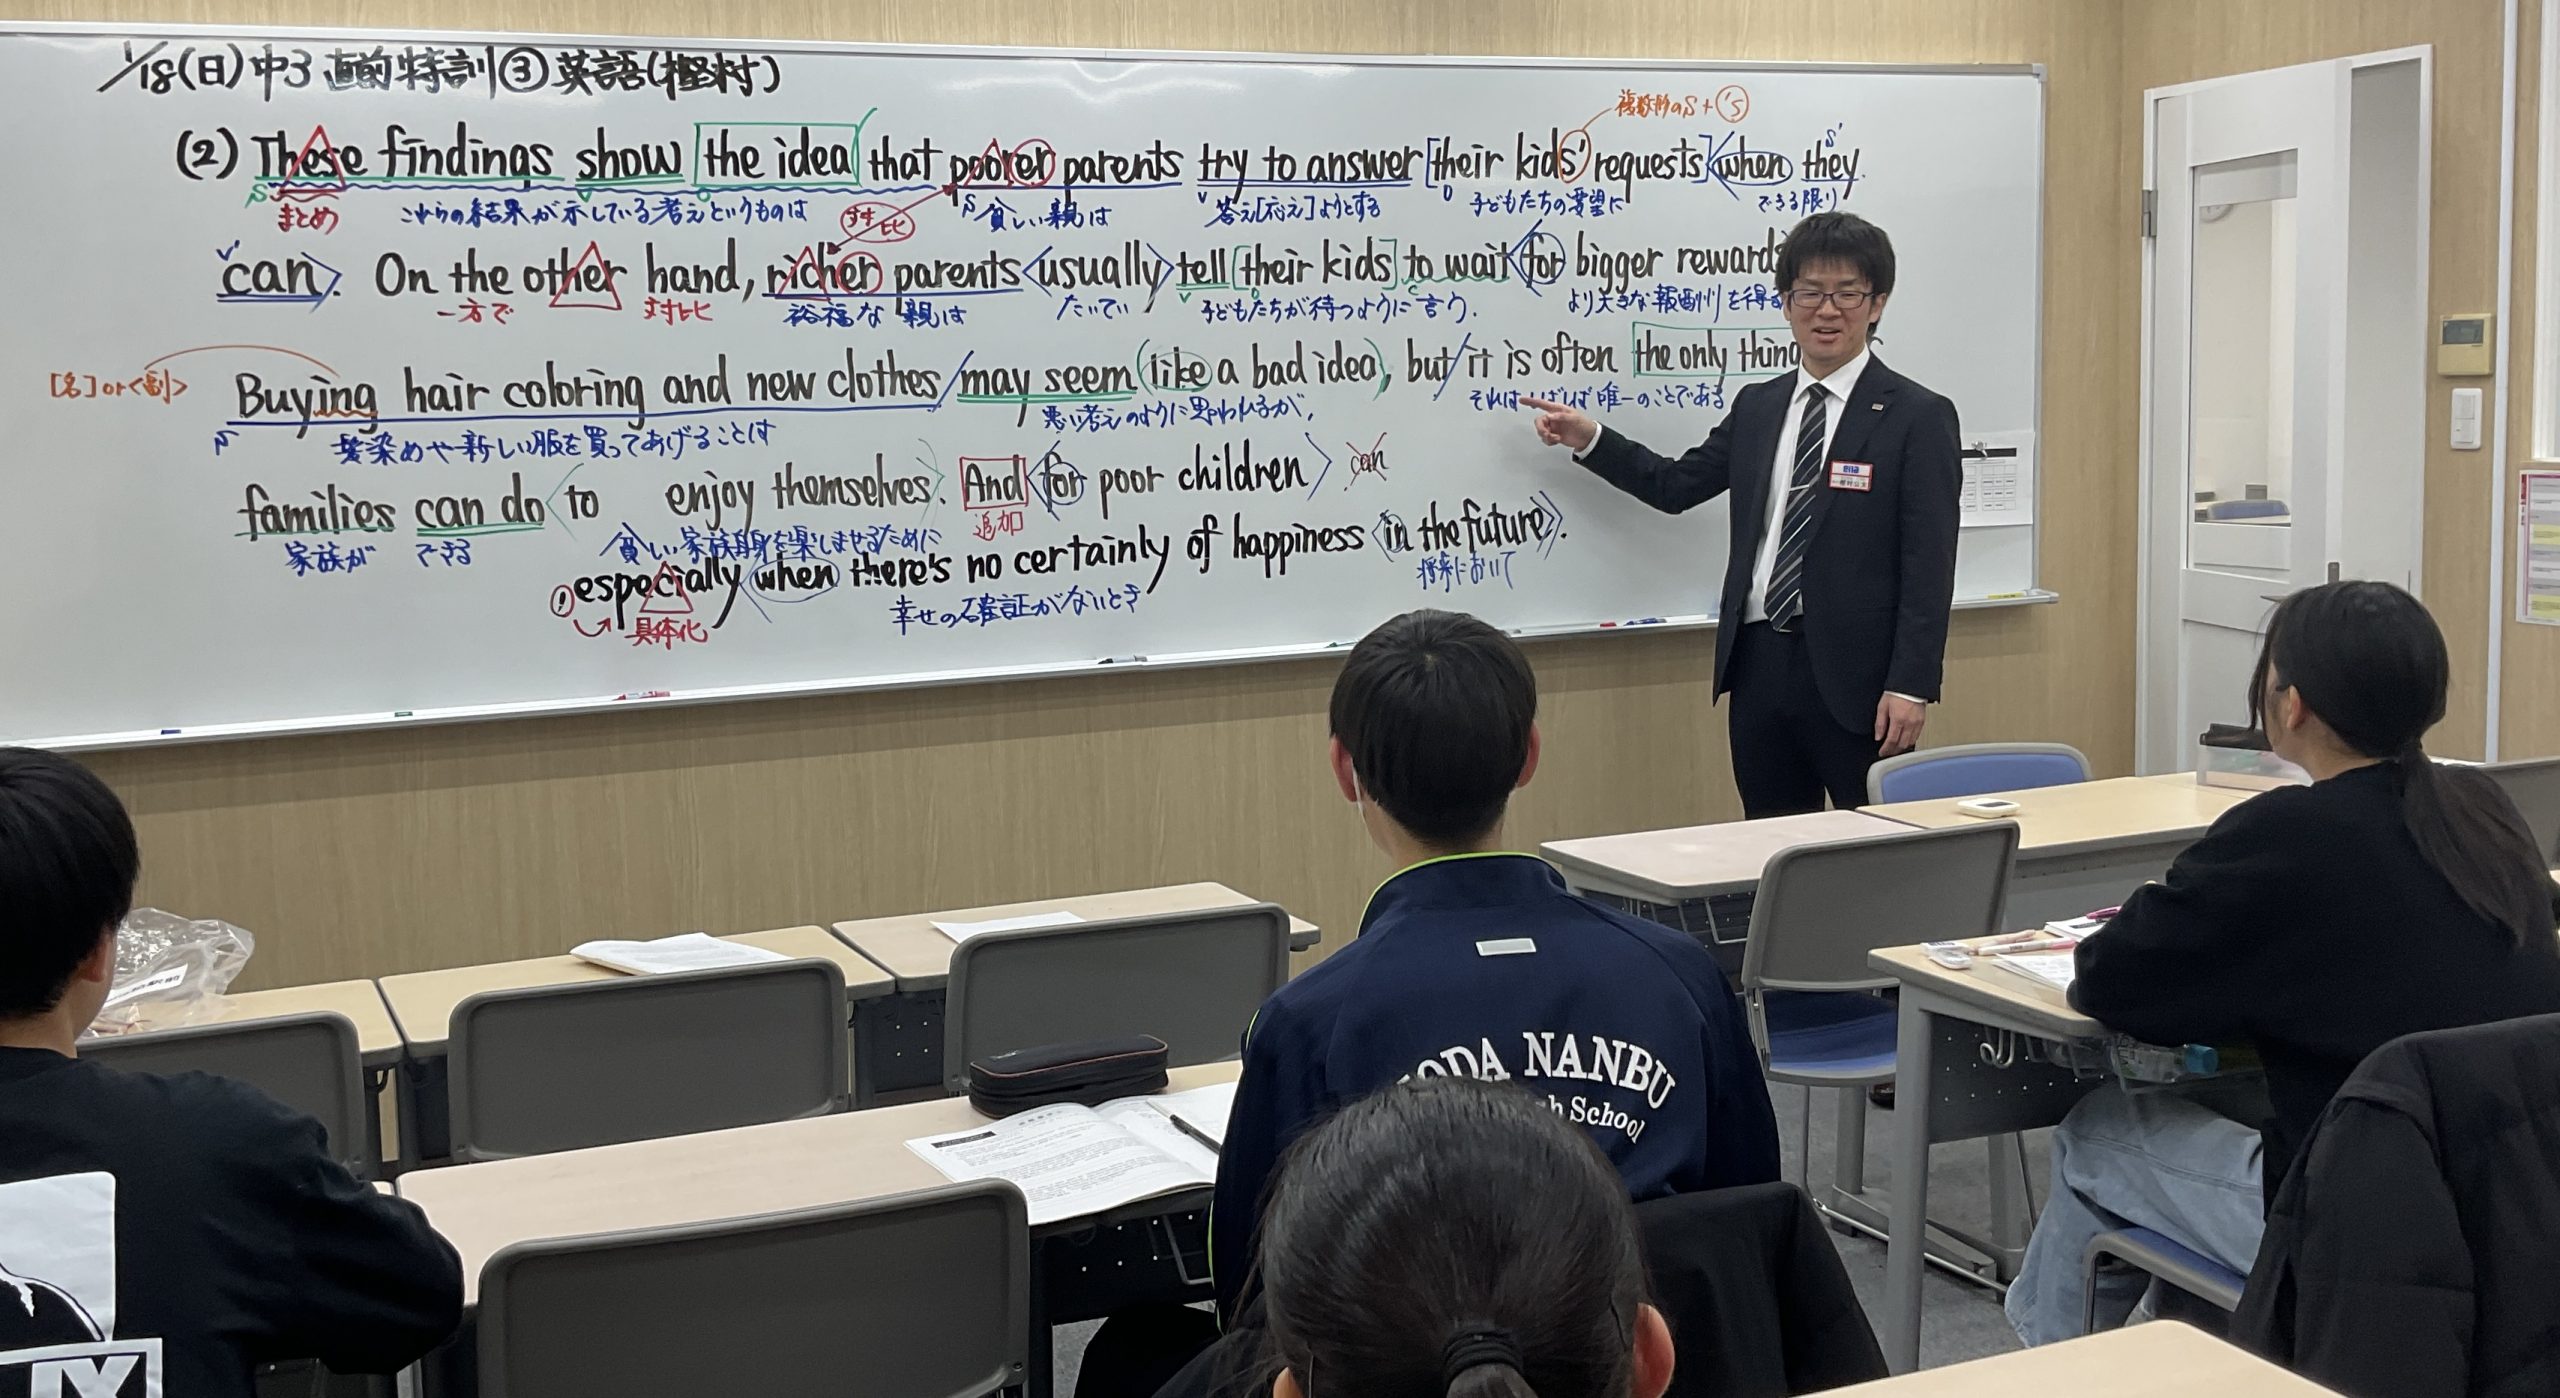 1/18(日)中3 直前特訓③英語(樫村)
複数形のS+'s
(2) These findings show the idea that poorer parents try to answer [their kids' requests] <when they
S V O S V O S'
まとめ これらの結果が示している考えというものは 対比 貧しい親は 答え[応え]ようとする 子どもたちの要望に できる限り
V'
can>. On the other hand, richer parents <usually> tell [their kids] to wait <for bigger rewards
一方で 対比 裕福な親は たいてい V O C 子どもたちが待つように言う. より大きな報酬を得る
[名]or<副>
Buying hair coloring and new clothes / may seem (like a bad idea), but / it is often the only thing
S 髪染めや新しい服を買ってあげることは 悪い考えのように思われるが, それはしばしば唯一のことである
families can do <to enjoy themselves>. And <for poor children> can
家族が できる 貧しい家族自身を楽しませるために 追加
! especially <when there's no certainly of happiness <in the future>>.
具体化 幸せの確証がないとき 将来において
ena
NANBU
School